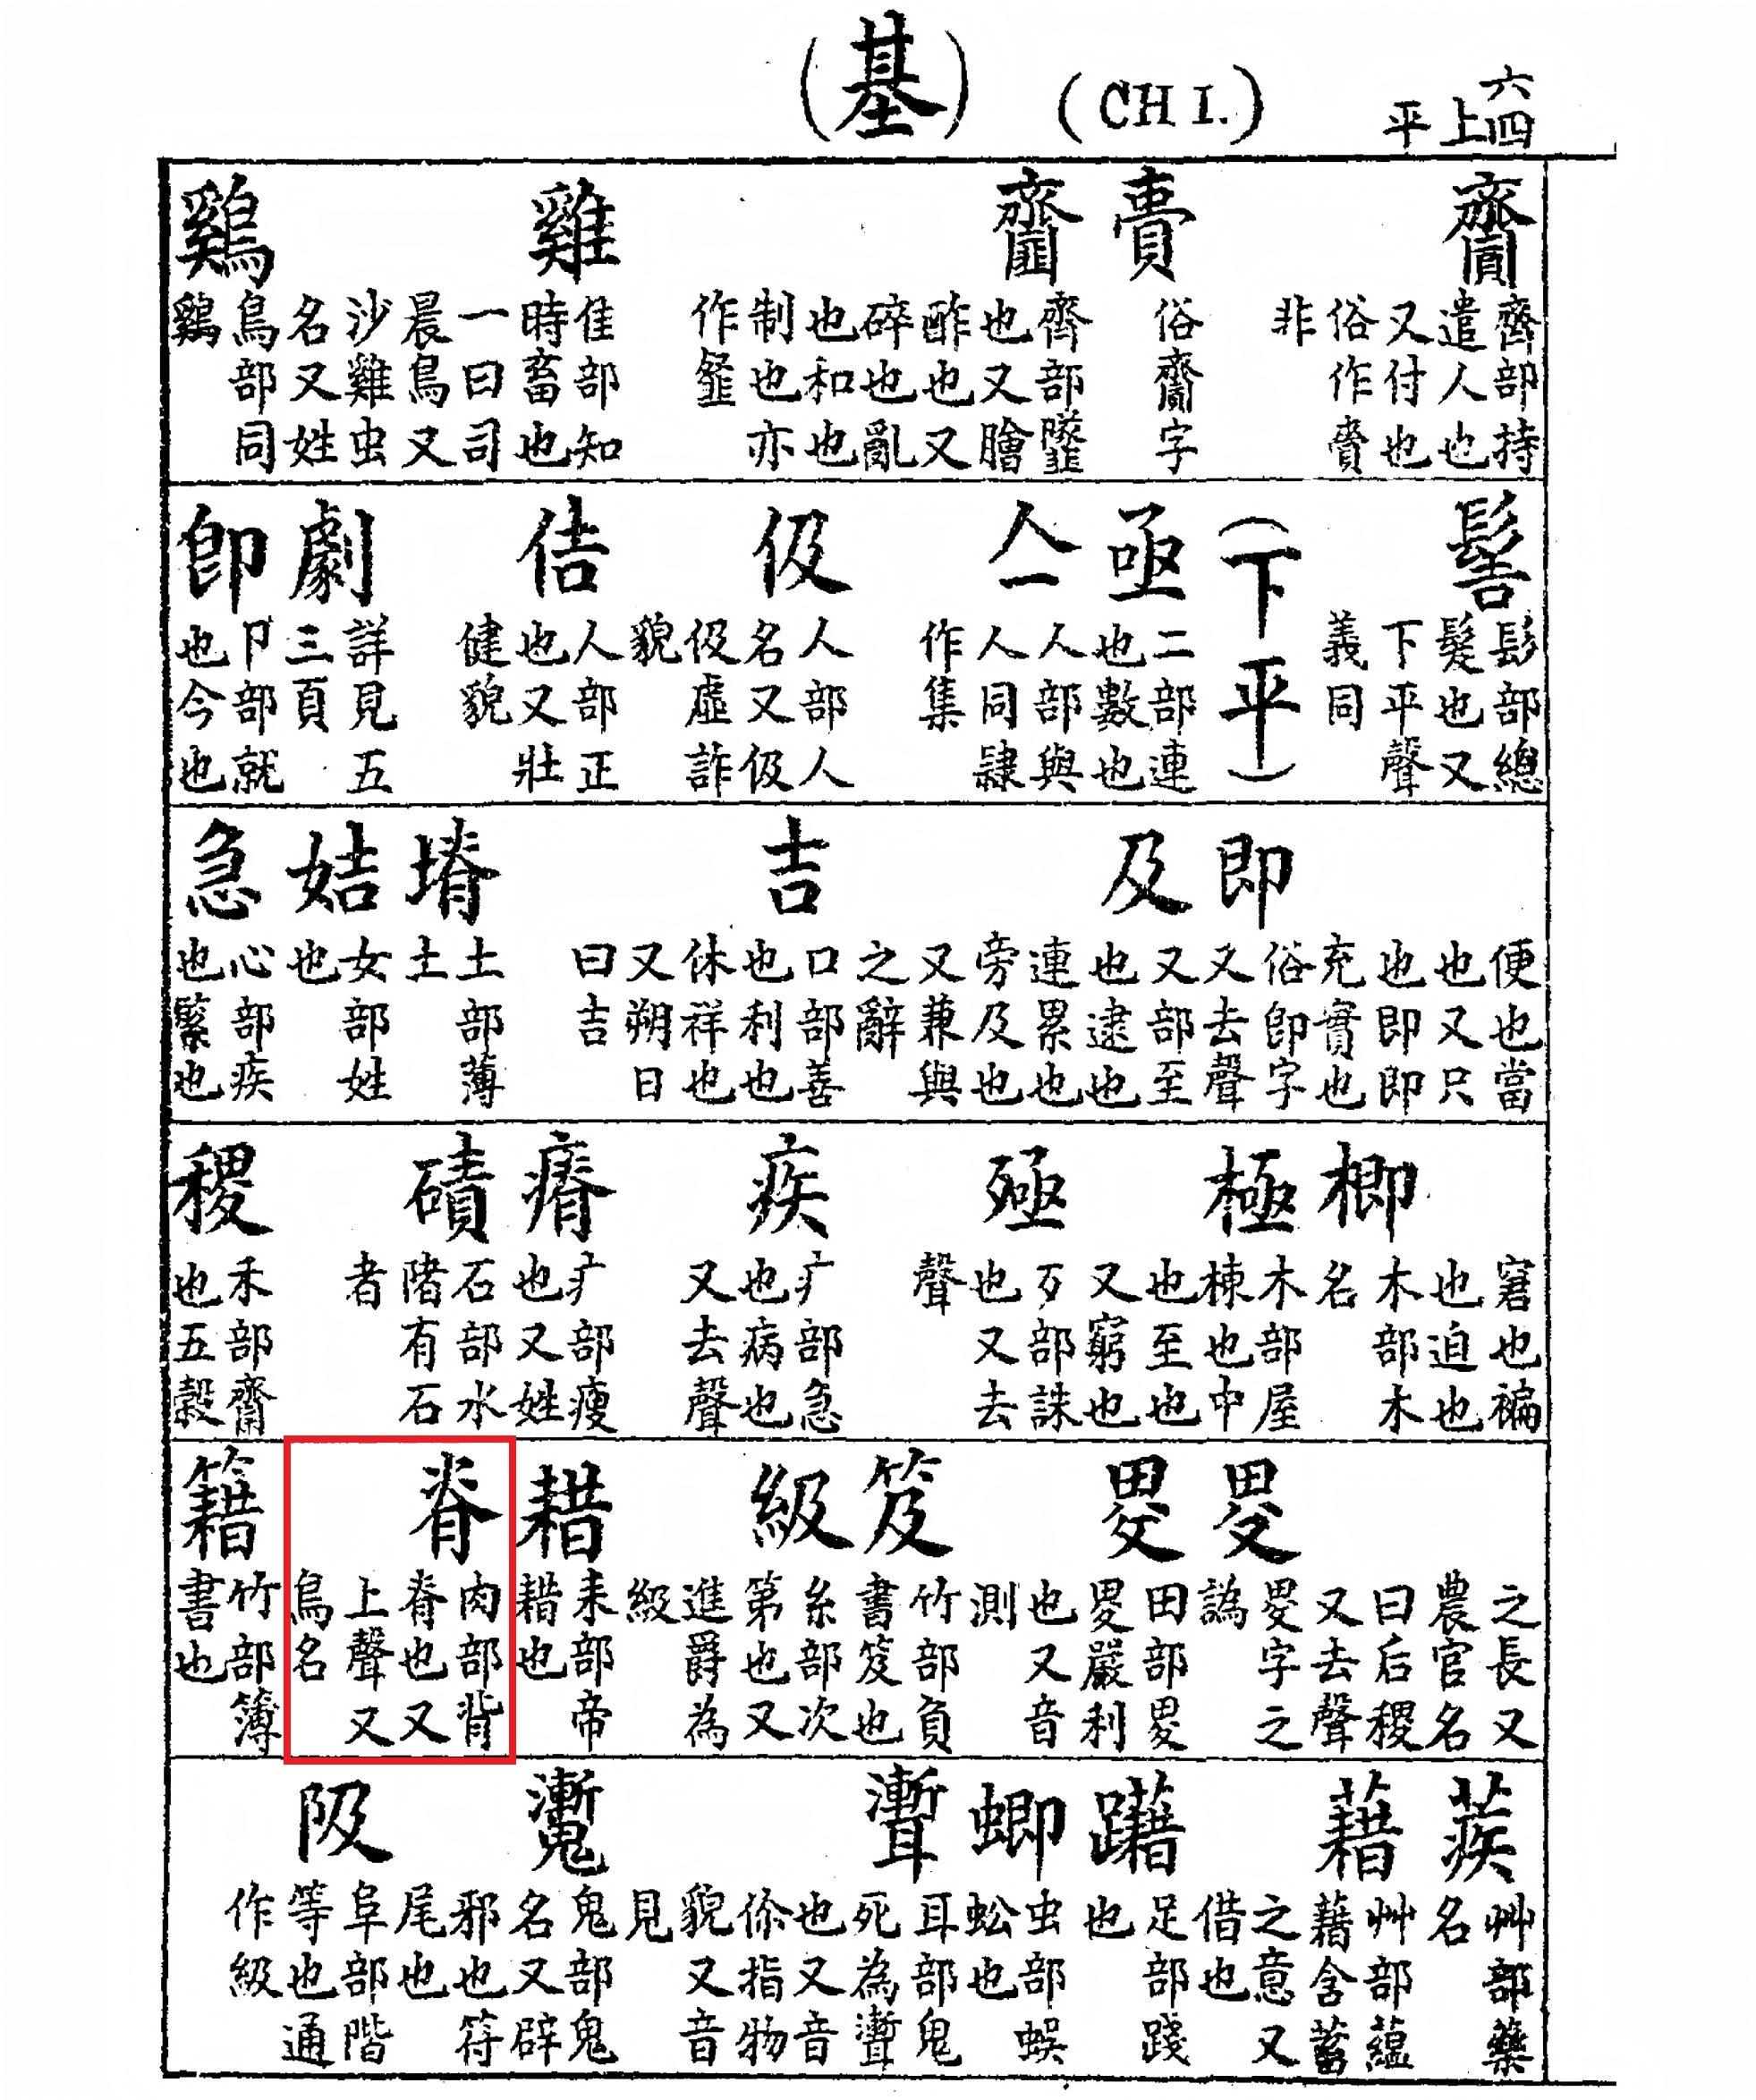 六四
上平
(CHI.)
(基)
齎
齊部持
遣人也
又付也
俗作賫
非
賷
俗齎字
齏
齊部
也又膾
酢也又
碎也亂
也和也
制也亦
作韲
雞
隹部知
時畜也
一曰司
晨鳥又
沙雞虫
名又姓
鷄
鳥部同
鷄
髻
髟部總
髮也又
下平聲
義同
(下平)
亟
二部連
也數也
亼
人部與
人同隷
作集
伋
人部人
名又伋
伋虛詐
貌
佶
人部正
也又壯
健貌
劇
詳見五
三頁
卽
卩部就
也今也
便也當
也又只
也即即
充實也
即
俗卽字
又去聲
及
又部至
也逮也
連累也
旁及也
又兼與
之辭
吉
口部善
也利也
休祥也
又朔日
曰吉
塉
土部薄
土
姞
女部姓
也
急
心部疾
也緊也
窘也褊
也迫也
楖
木部木
名
極
木部屋
棟也中
也至也
又窮也
殛
歹部誅
也又去
聲
疾
疒部急
也病也
又去聲
瘠
疒部瘦
也又姓
磧
石部水
陼有石
者
稷
禾部齋
也五穀
之長又
農官名
曰后稷
又去聲
畟字之
譌
畟
田部畟
畟嚴利
也又音
測
笈
竹部負
書笈也
級
糸部次
第也又
進爵為
級
耤
耒部帝
耤也
脊
肉部背
脊也又
上聲又
鳥名
籍
竹部簿
書也
蒺
艸部藥
名
藉
艸部蘊
藉含蓄
之意又
借也
躤
足部踐
也
蝍
虫部蜈
蚣也
聻
耳部鬼
死為聻
也又音
伱指物
貌又音
見
鬼部鬼
名又辟
邪也符
尾也
阜部階
等也通
作級